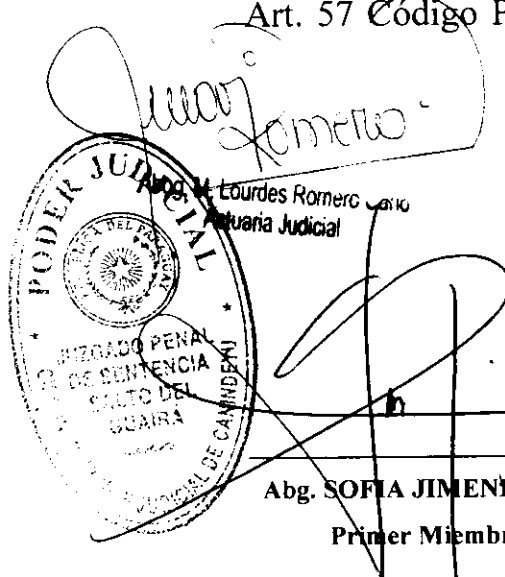 Art. 57 Código P
Romero
Abog. M. Lourdes Romero
Actuaria Judicial
PODER JUDICIAL
REPUBLICA DEL PARAGUAY
JUZGADO PENAL
DE SENTENCIA
SALTO DEL
GUAIRA
JUDICIAL DE CANINDEYU
Abg. SOFIA JIMEN
Primer Miembr